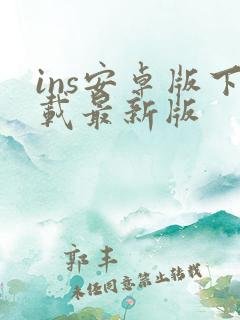 ins安卓版下
载最新版
郭丰
未经同意禁止转载